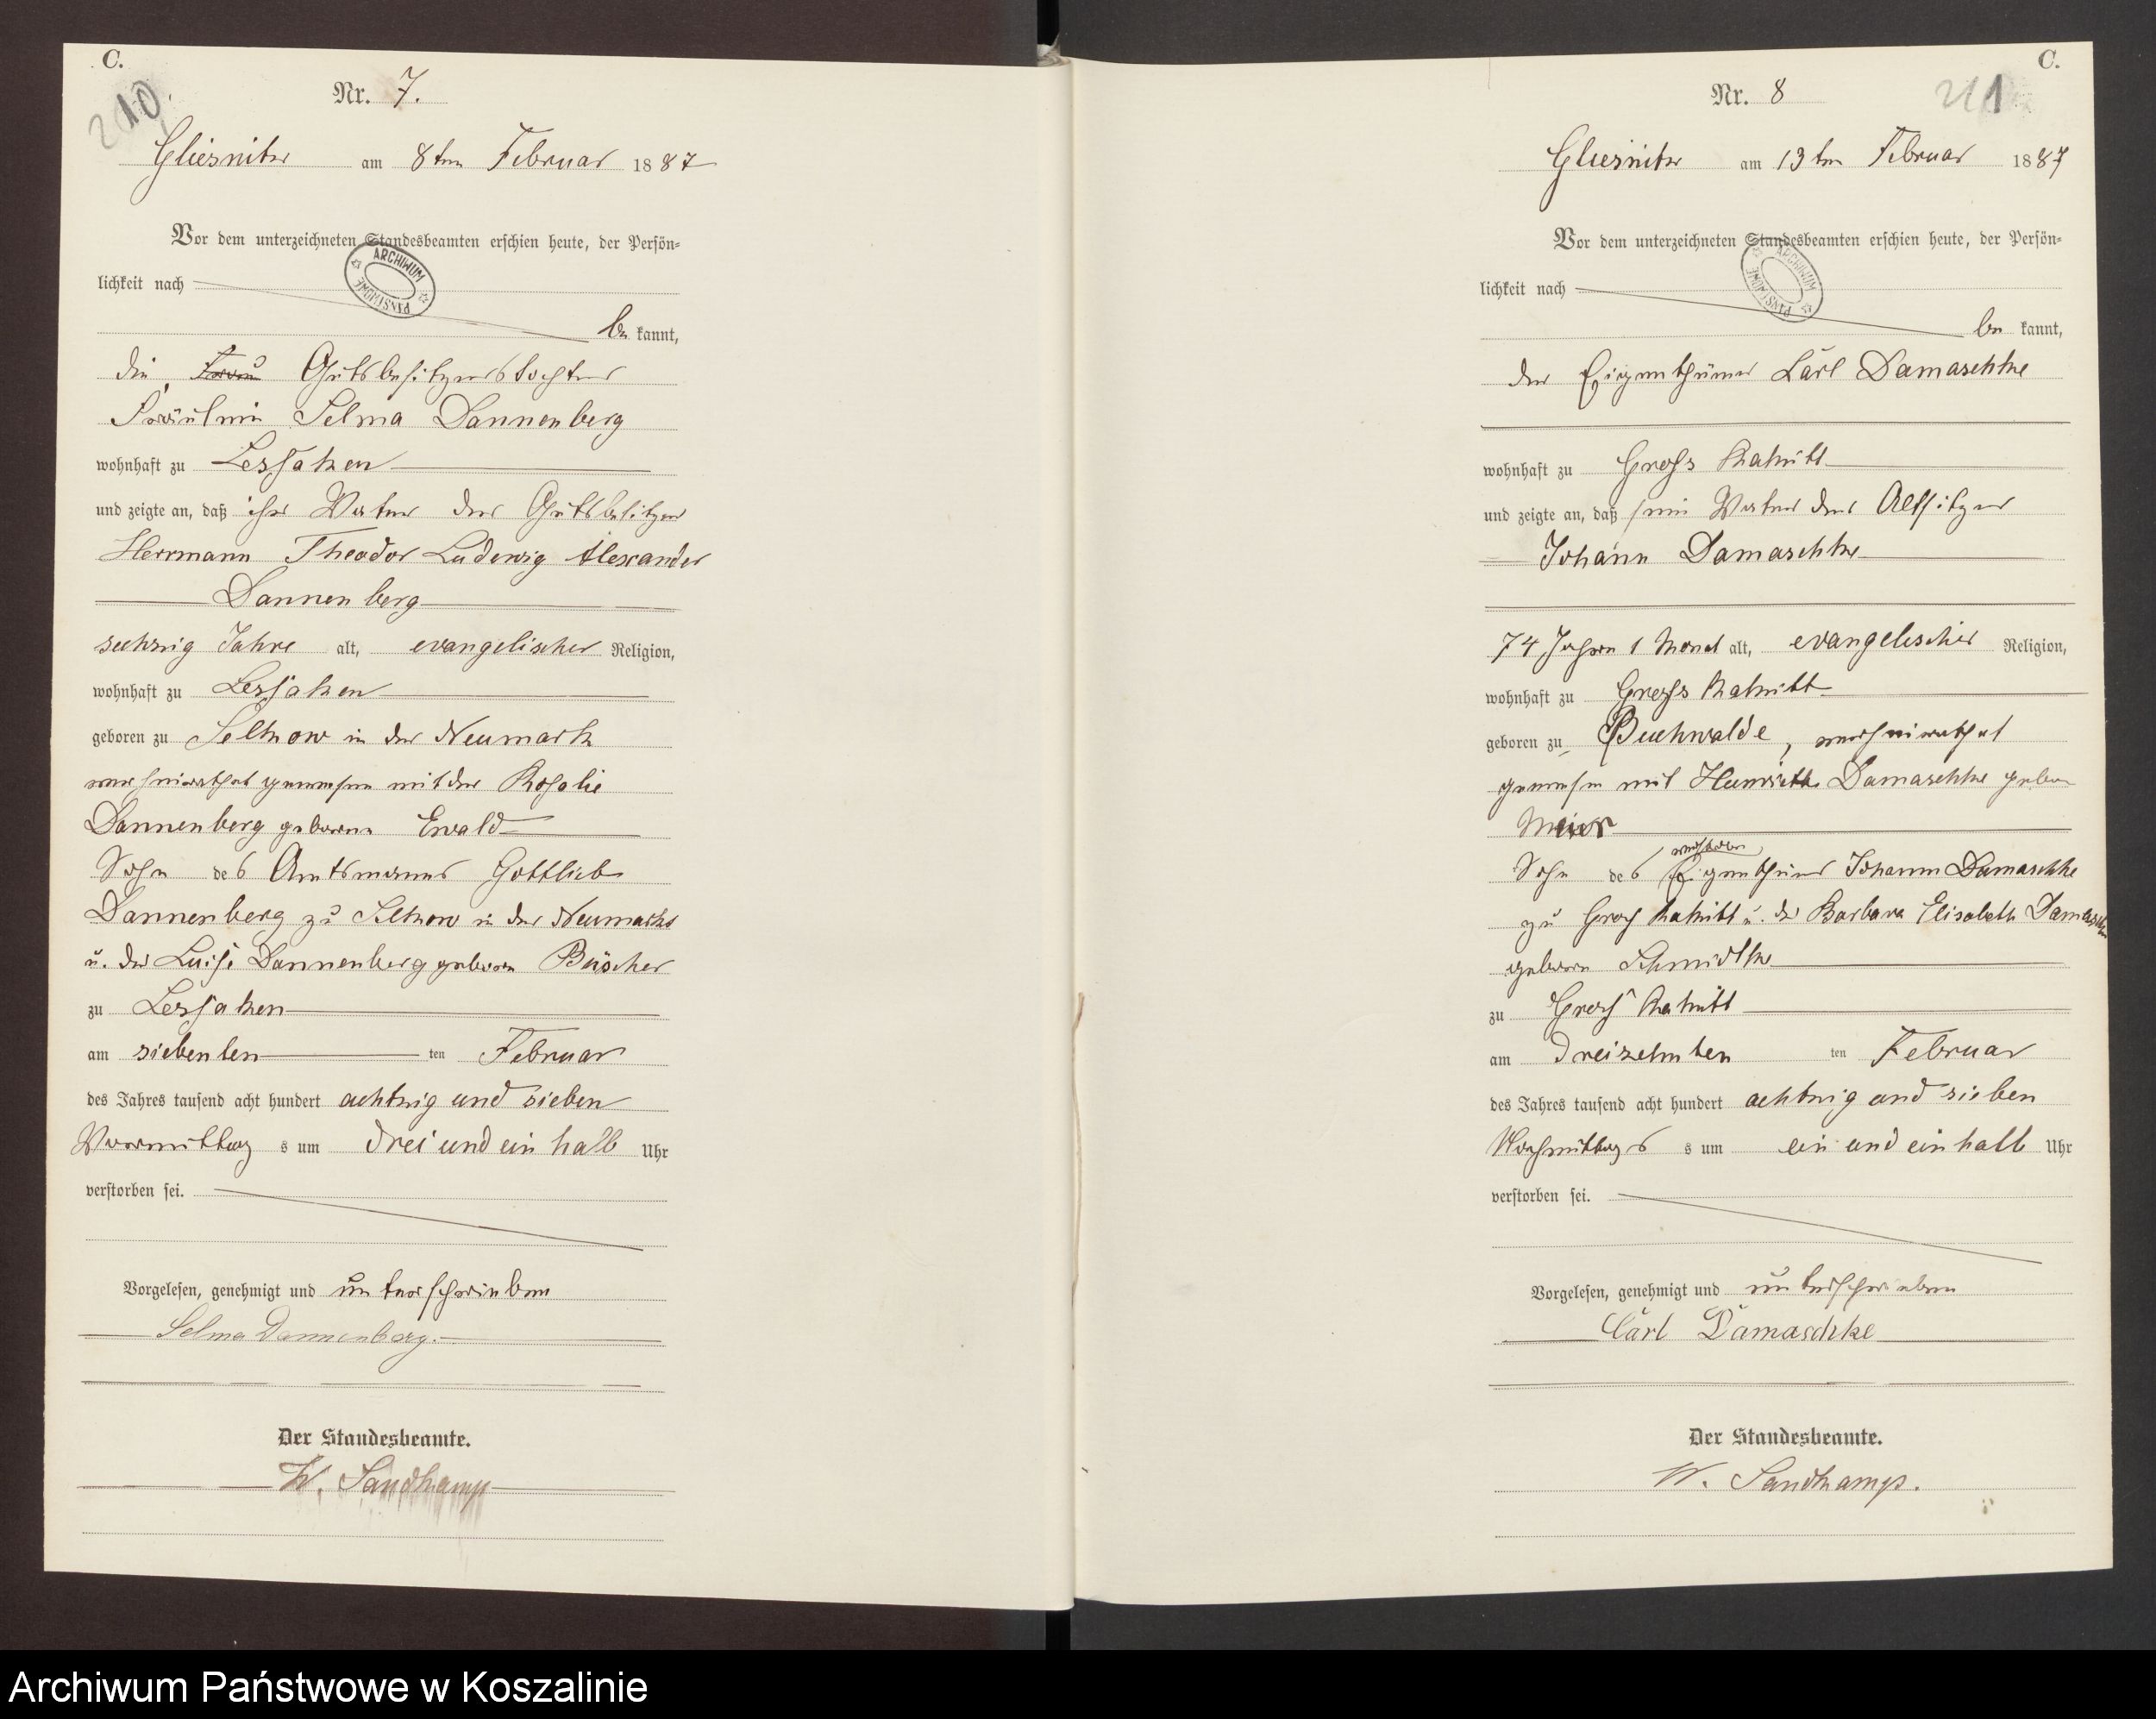 C.
210.
Nr. 7.
Gliesnitz am 8ten Februar 1887
Vor dem unterzeichneten Standesbeamten erschien heute, der Persön-
lichkeit nach
ARCHIWUM PAŃSTWOWE
be kannt,
die Frau Gutsbesitzerstochter
Fräulein Selma Dannenberg
wohnhaft zu Lessaken
und zeigte an, daß ihr Vater der Gutsbesitzer
Herrmann Theodor Ludewig Alexander
Dannenberg
sechzig Jahre alt, evangelischer Religion,
wohnhaft zu Lessaken
geboren zu Selchow in der Neumark
verheirathet gewesen mit der Rosalie
Dannenberg geborene Ewald
Sohn des Amtsmanns Gottlieb
Dannenberg zu Selchow in der Neumark
u. der Luise Dannenberg geboren Büscher
zu Lessaken
am siebenten ten Februar
des Jahres tausend acht hundert achtzig und sieben
Vormittag s um drei und ein halb Uhr
verstorben sei.
Vorgelesen, genehmigt und unterschrieben
Selma Dannenberg.
Der Standesbeamte.
W. Sandkamp
C.
211
Nr. 8
Gliesnitz am 13ten Februar 1887
Vor dem unterzeichneten Standesbeamten erschien heute, der Persön-
lichkeit nach
ARCHIWUM PAŃSTWOWE
be kannt,
der Eigenthümer Carl Damaschke
wohnhaft zu Gross Rakitt
und zeigte an, daß sein Vater der Altsitzer
Johann Damaschke
74 Jahre 1 Monat alt, evangelischer Religion,
wohnhaft zu Gross Rakitt
geboren zu Buchwalde, verheirathet
gewesen mit Henriette Damaschke geboren
Meier
verstorben
Sohn des Eigenthümer Johann Damaschke
zu Groß Rakitt u. der Barbara Elisabeth Damaschke
geboren Schmidtke
zu Groß Rakitt
am dreizehnten ten Februar
des Jahres tausend acht hundert achtzig und sieben
Nachmittags s um ein und ein halb Uhr
verstorben sei.
Vorgelesen, genehmigt und unterschrieben
Carl Damaschke
Der Standesbeamte.
W. Sandkamp.
Archiwum Państwowe w Koszalinie